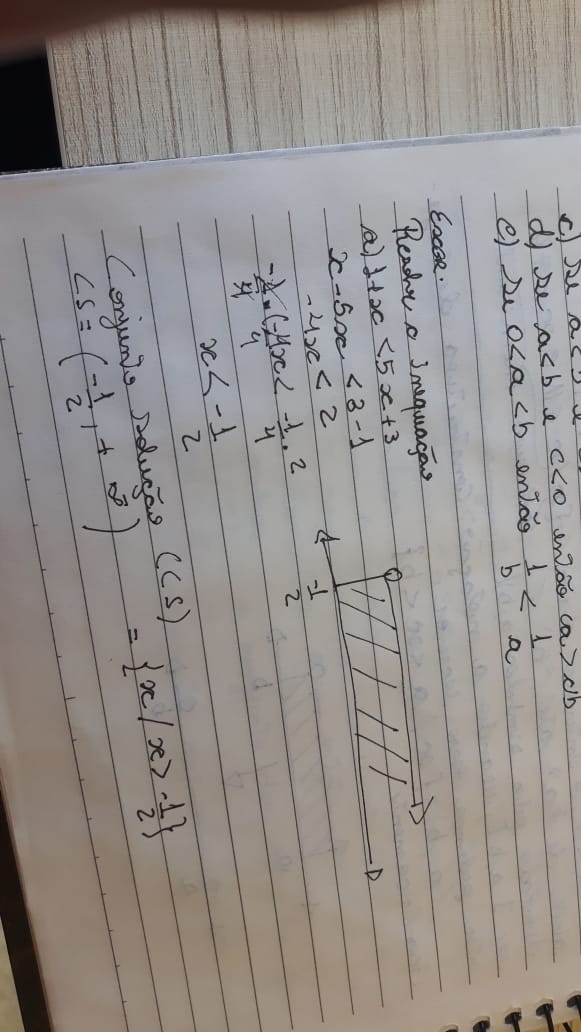 c) se a<b e c
d) se a<b e c<0 então ca > cb
e) se 0<a<b então 1/b < 1/a
Exer.
Resolver a Inequação
a) 1+x <5x+3
x-5x <3-1
-4x< 2
-1/4.(-4x< -1/4.2
x< -1/2
-1/2
Conjunto solução (CS)
CS= (-1/2,+∞)
= {x/x> -1/2}